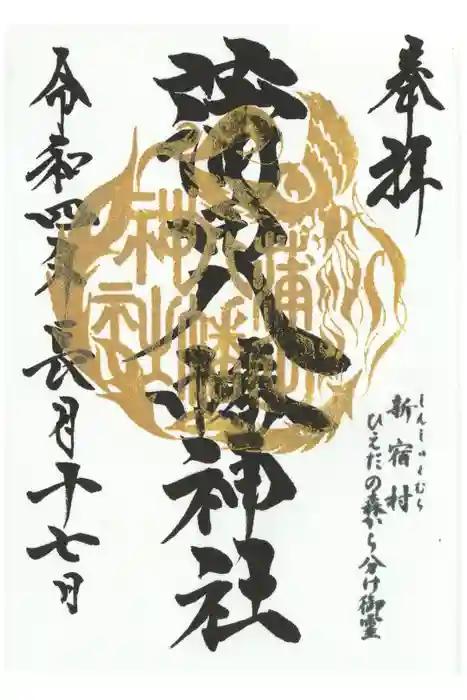 奉拝
しんしゅくむら
新宿村
ひえだの森から分け御霊
蒲八幡神社
蒲八幡神社
令和四年長月十七日